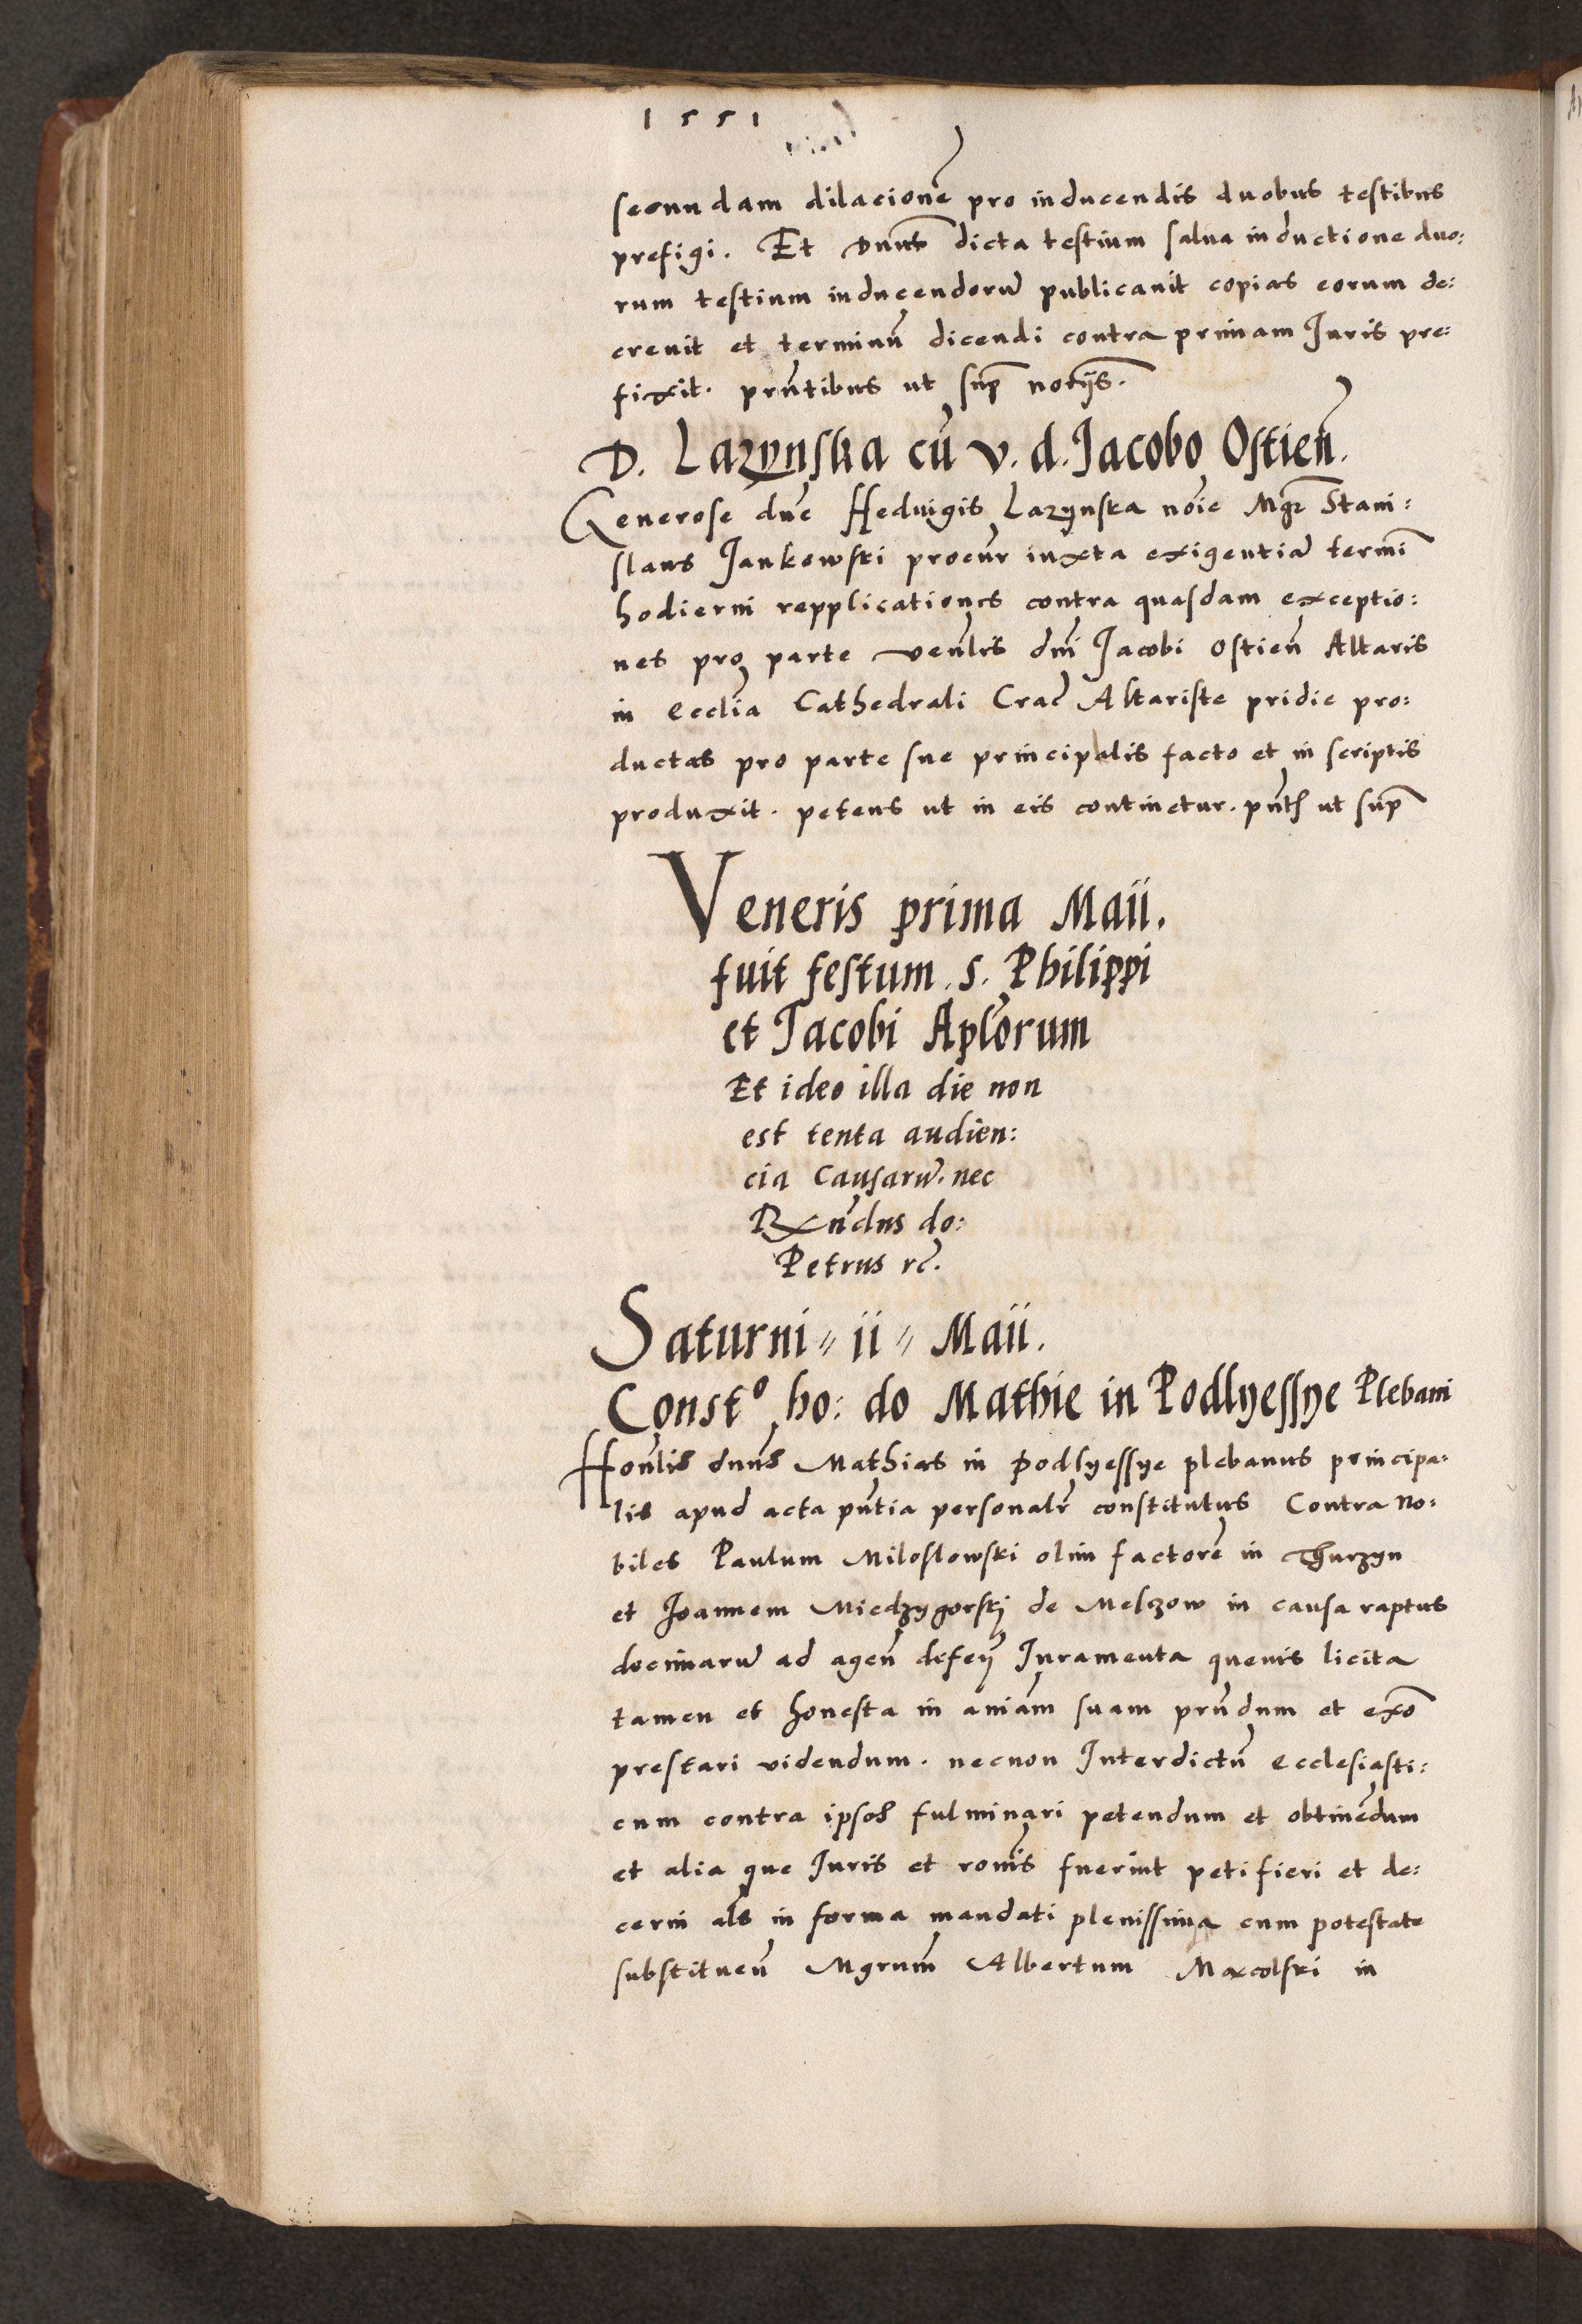 1551
secundam dilacionẽ pro inducendis duobus testibus
prefigi. Et Dnus dicta testium salua inductione duo:
rum testium inducendorũ publicauit copias eorum de:
creuit et terminũ dicendi contra primam Juris pre:
fixit. pñtibus ut sup notijs.
D. Lazynska cũ v. d. Jacobo Ostieñ.
Generose dñe Heduigis Lazynska noĩe Mgr Stani:
slaus Jankowski procur iuxta exigentiã termĩ
hodierni repplicationes contra quasdam exceptio:
nes pro parte veñlis dñi Jacobi Ostieñ Altaris
in Ecclĩa Cathedrali Crac̃ Altariste pridie pro:
ductas pro parte sue principalis facto et in scriptis
produxit. petens ut in eis continetur. pñtƀ ut sup
Veneris prima Maii.
fuit festum .s. Philippi
et Jacobi Aplõrum
Et ideo illa die non
est tenta audien:
cia Causarũ. nec
Rxñdus do:
Petrus rc̃.
Saturni // ii // Maii.
Constº ho: do Mathie in Podlyessye Plebani
Hoñlis dnũs Mathias in Podlyessye plebanus principa:
lis apud acta pñtia personalr̃ constitutus Contra No:
biles Paulum Miloslowski olim factorẽ in Thurzyn
et Joannem Miedzygorskj de Melzow in causa raptus
decimarũ ad ageñ defeñ Juramenta queuis licita
tamen et honesta in aniãm suam prñdum et exo
prestari videndum. necnon Interdictũ ecclesiasti:
cum contra ipsos fulminari petendum et obtinẽdum
et alia que Juris et roñis fuerint peti fieri et de:
cerni als in forma mandati plenissima cum potestate
substitueñ Mgrum Albertum Maxcolski in